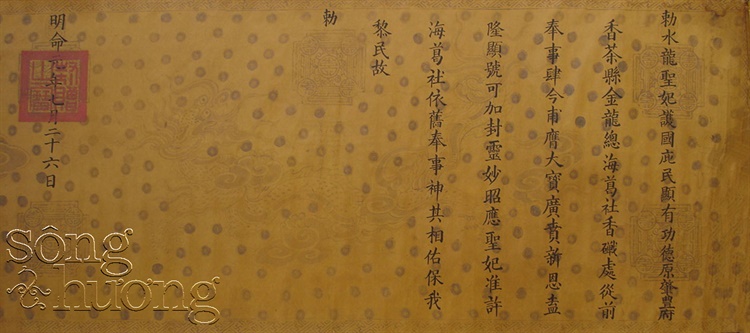 勅水龍聖妃護國庇民顯有功德原肇豐府
香茶縣金龍總海葛社香㼘處從前
奉事肆今甫膺大寶廣賁新恩盍
隆顯號可加封靈妙昭應聖妃准許
海葛社依舊奉事神其相佑保我
黎民故
勅
明命 年七月二十六日
sông
hương